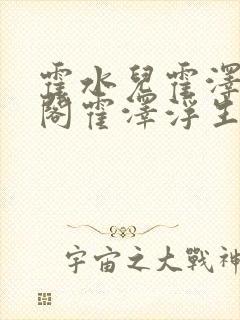 霍水兒霍澤
閣霍澤浮生
宇宙之大戰神